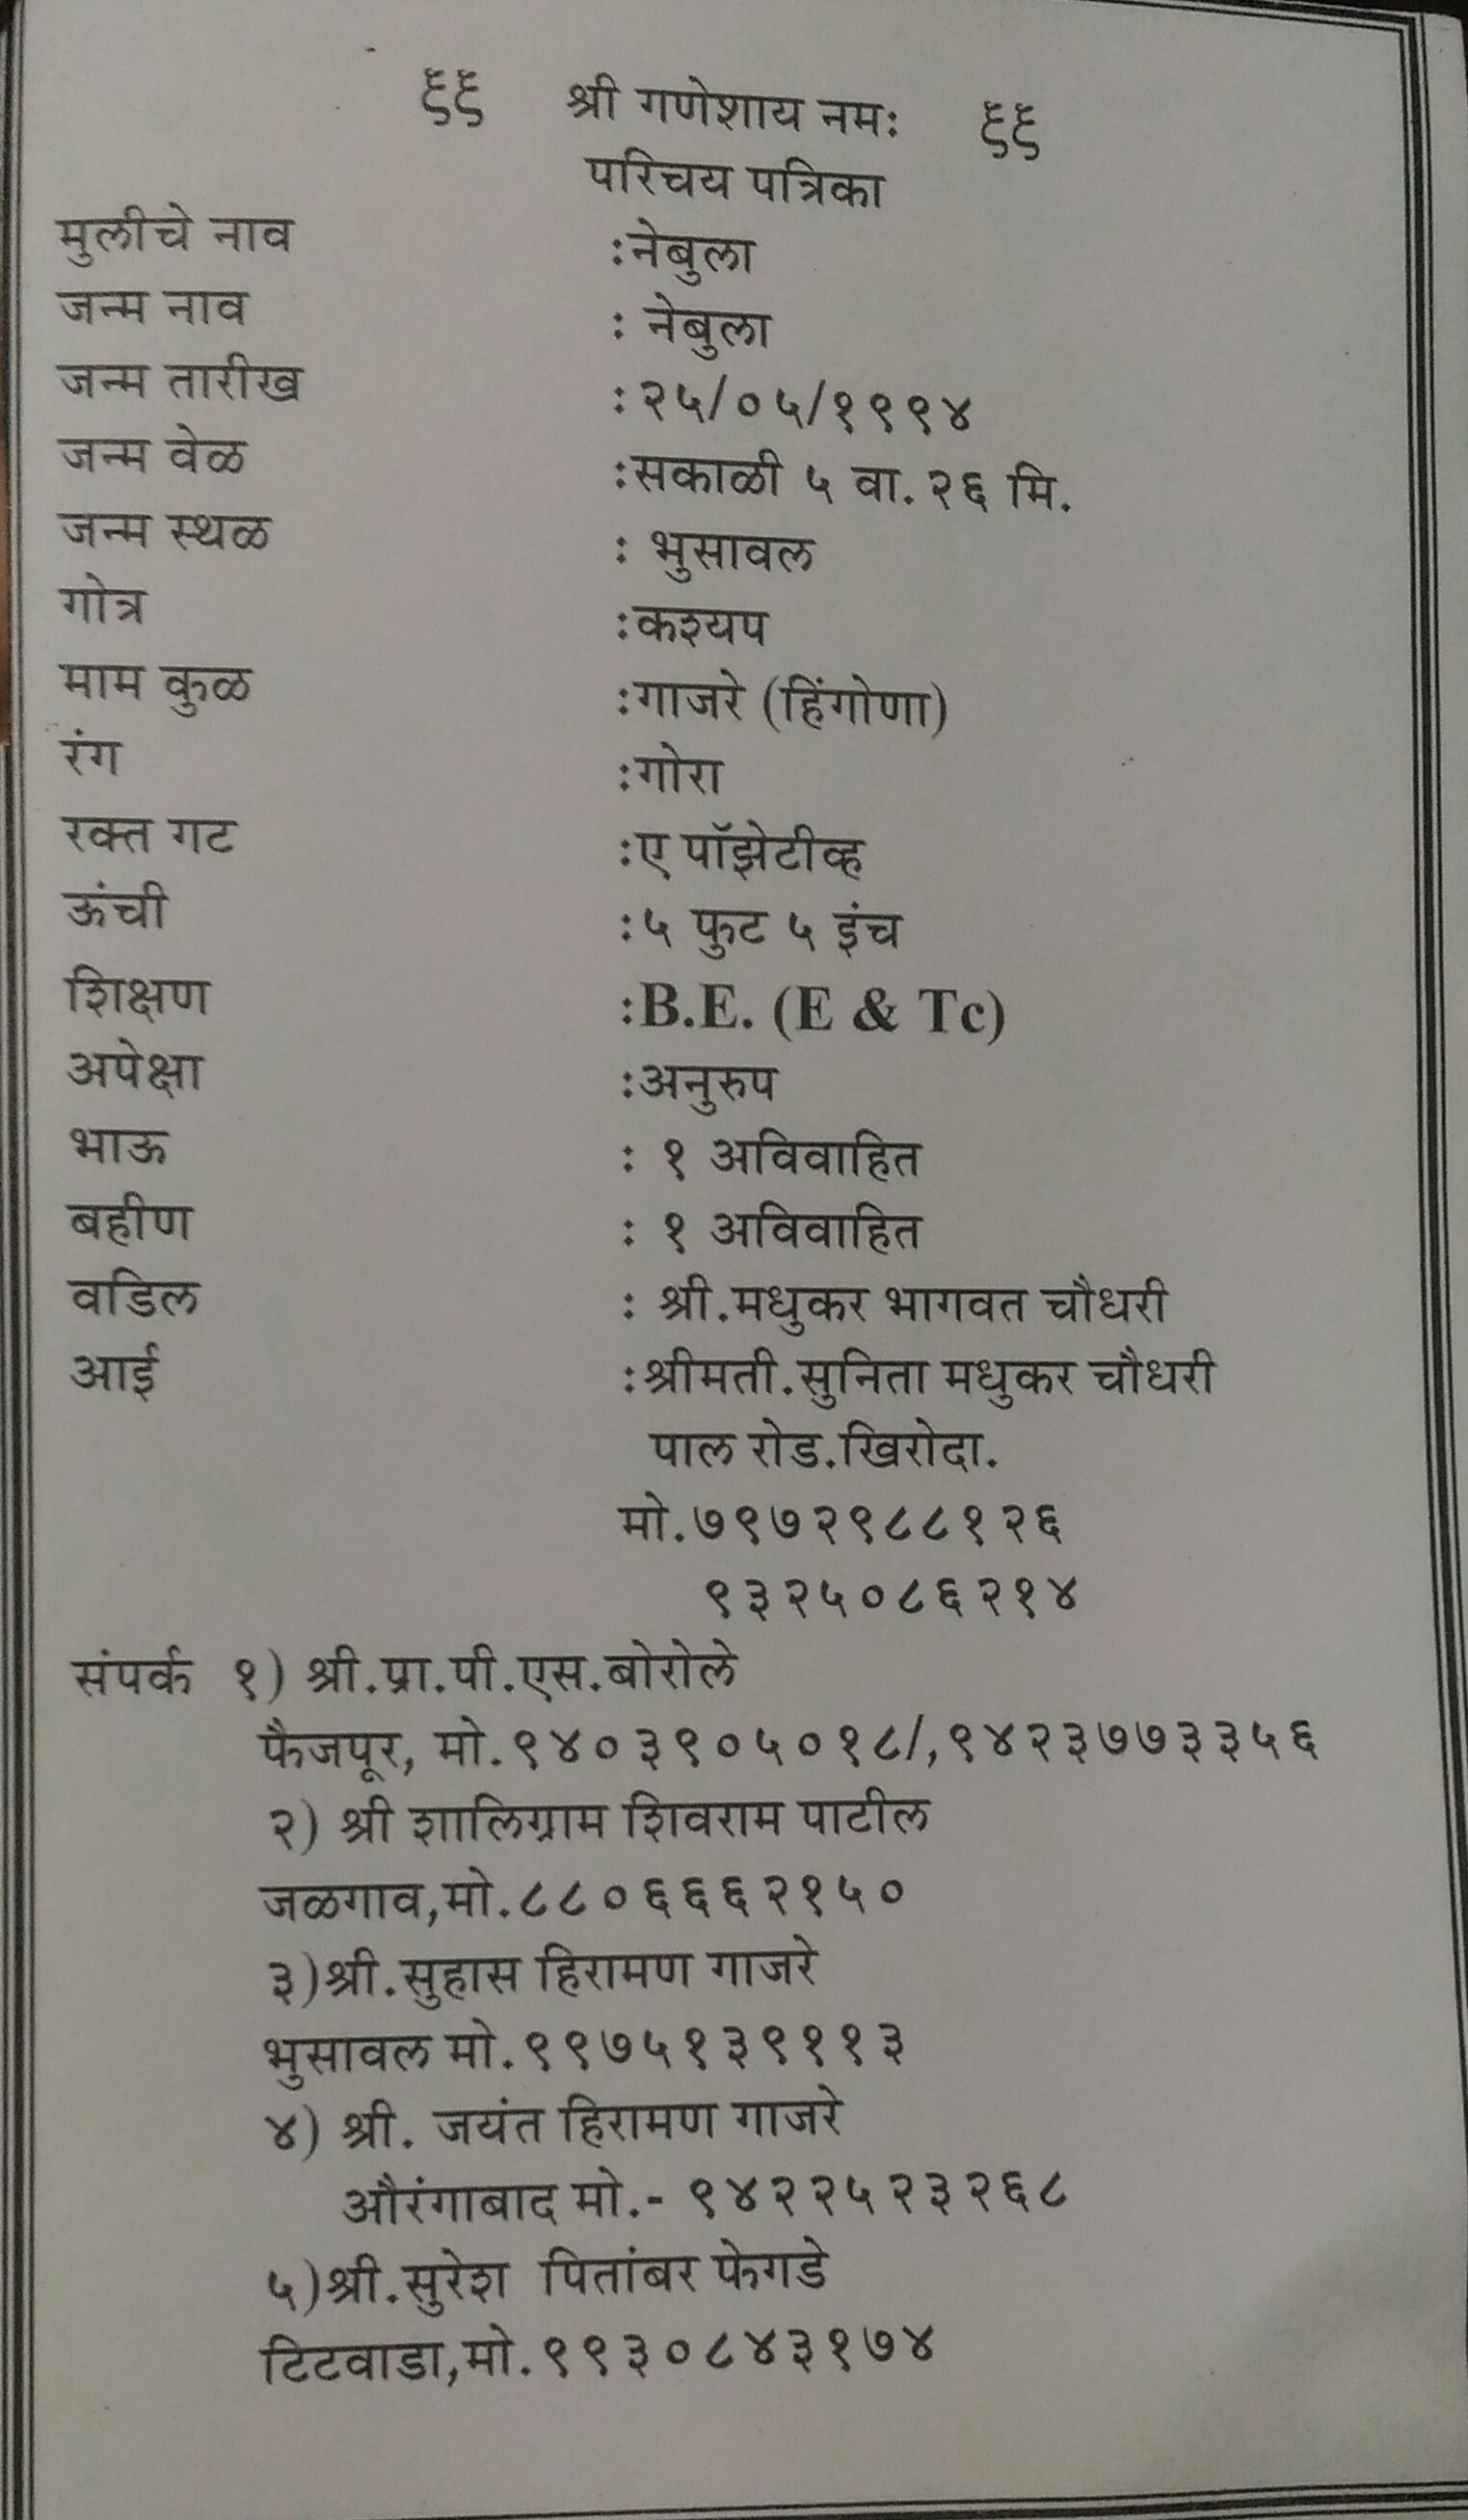 ॐॐ श्री गणेशाय नमः ॐॐ
परिचय पत्रिका
मुलीचे नाव :नेबुला
जन्म नाव : नेबुला
जन्म तारीख :२५/०५/१९९४
जन्म वेळ :सकाळी ५ वा.२६ मि.
जन्म स्थळ : भुसावल
गोत्र :कश्यप
माम कुळ :गाजरे (हिंगोणा)
रंग :गोरा
रक्त गट :ए पॉझेटीव्ह
ऊंची :५ फुट ५ इंच
शिक्षण :B.E. (E & Tc)
अपेक्षा :अनुरुप
भाऊ : १ अविवाहित
बहीण : १ अविवाहित
वडिल : श्री.मधुकर भागवत चौधरी
आई :श्रीमती.सुनिता मधुकर चौधरी
पाल रोड.खिरोदा.
मो.७९७२९८८१२६
९३२५०८६२१४
संपर्क १) श्री.प्रा.पी.एस.बोरोले
फैजपूर, मो.९४०३९०५०१८/,९४२३७७३३५६
२) श्री शालिग्राम शिवराम पाटील
जळगाव,मो.८८०६६६२१५०
३)श्री.सुहास हिरामण गाजरे
भुसावल मो.९९७५१३९११३
४) श्री. जयंत हिरामण गाजरे
औरंगाबाद मो.- ९४२२५२३२६८
५)श्री.सुरेश पितांबर फेगडे
टिटवाडा,मो.९९३०८४३१७४